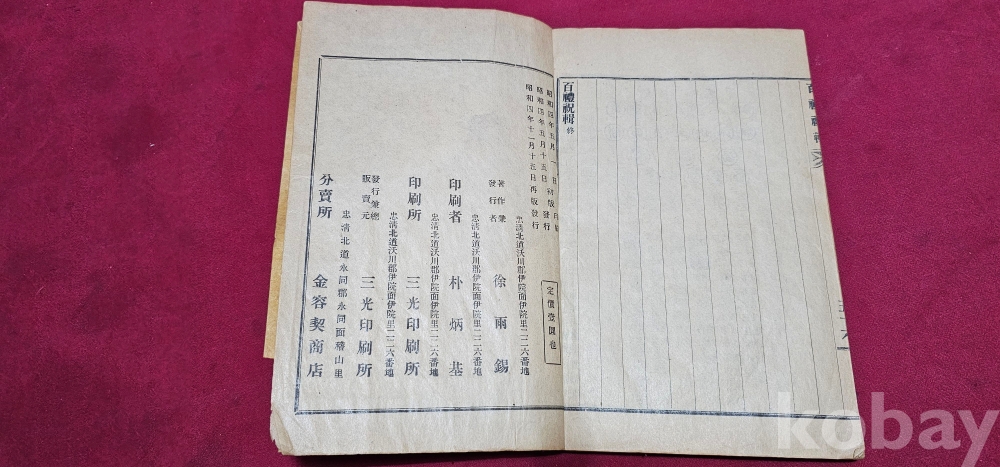 百禮祝輯 終
昭和四年五月
昭和四年五月十五日初版發行
昭和四年十一月十五日再版發行
定價壹圓也
忠淸北道沃川郡伊院面伊院里二二六番地
著作兼發行者 徐雨錫
忠淸北道沃川郡伊院面伊院里二二六番地
印刷者 朴炳基
忠淸北道沃川郡伊院面伊院里二二六番地
印刷所 三光印刷所
忠淸北道沃川郡伊院面伊院里二二六番地
發行兼總販賣元 三光印刷所
忠淸北道永同郡永同面稽山里
分賣所 金容契商店
kobay